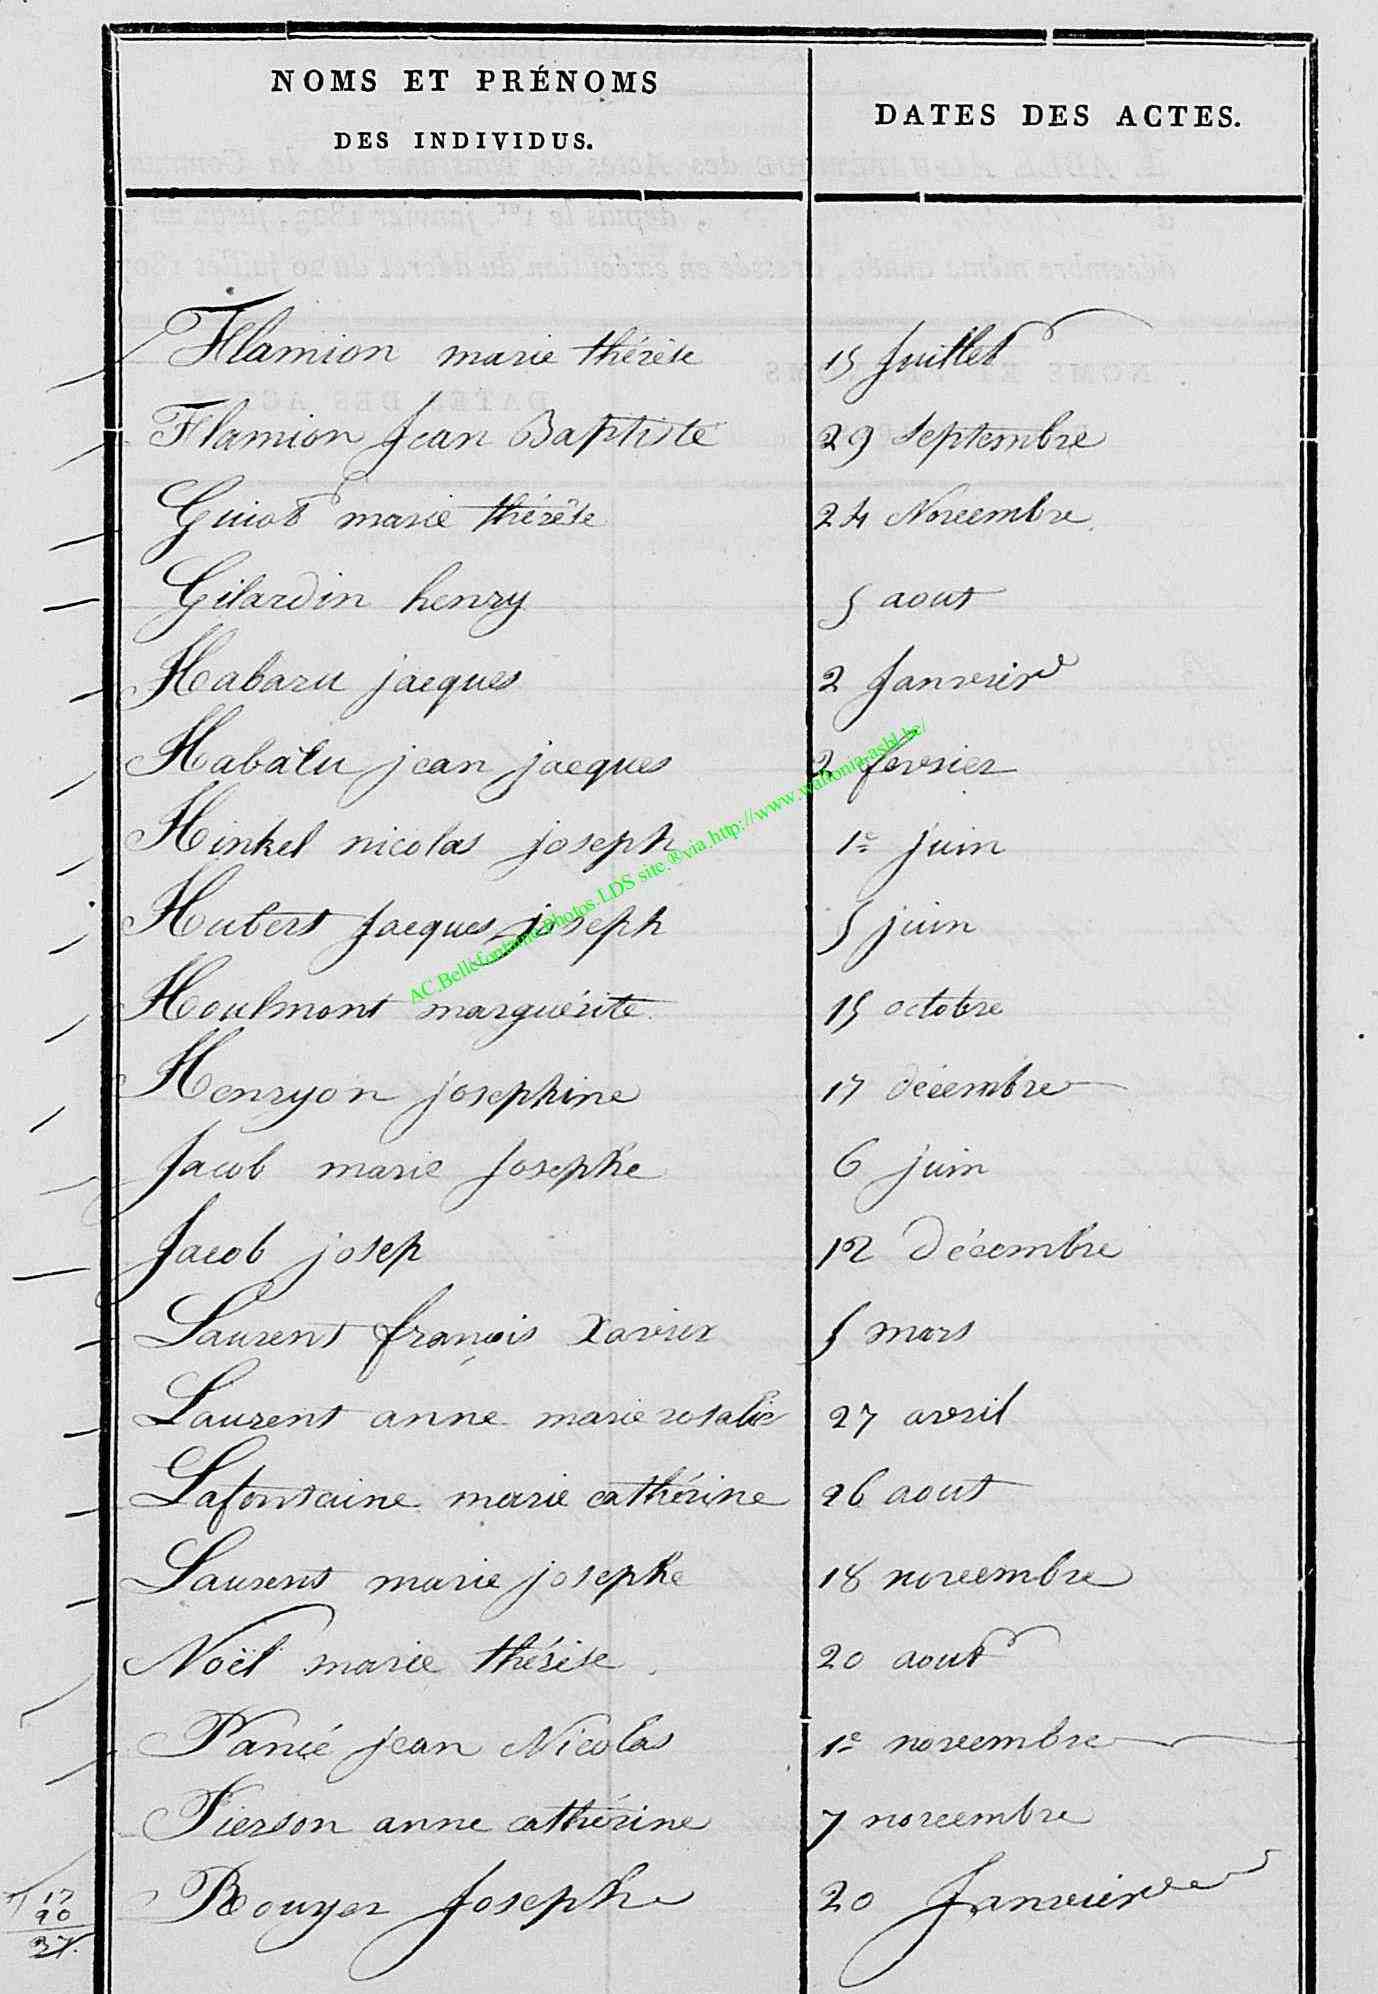 NOMS ET PRÉNOMS
DES INDIVIDUS.
DATES DES ACTES.
Flamion marie thérèse 15 Juillet
Flamion Jean Baptiste 29 Septembre
Guiot marie thérèse 24 Novembre
Gilardin henry 5 aout
Habaru jacques 2 Janvier
Habaru jean jacques 2 fevrier
Hinkel nicolas joseph 1e juin
Hubert Jacques joseph 5 juin
Houlmont marguérite 15 octobre
Henryon josephine 17 décembre
Jacob marie Josephe 6 juin
Jacob josep 12 Décembre
Laurent françois Xavier 5 mars
Laurent anne marie rosalie 27 avril
Lafontaine marie cathérine 26 aout
Laurent marie josephe 18 novembre
Noël marie thérèse 20 aout
Pancé jean Nicolas 1e novembre
Pierson anne cathérine 7 novembre
Rouyer Josephe 20 Janvier
17
20
37.
AC.Bellefontaine.Photos-LDS site.®via.http://www.wallonia-asbl.be/